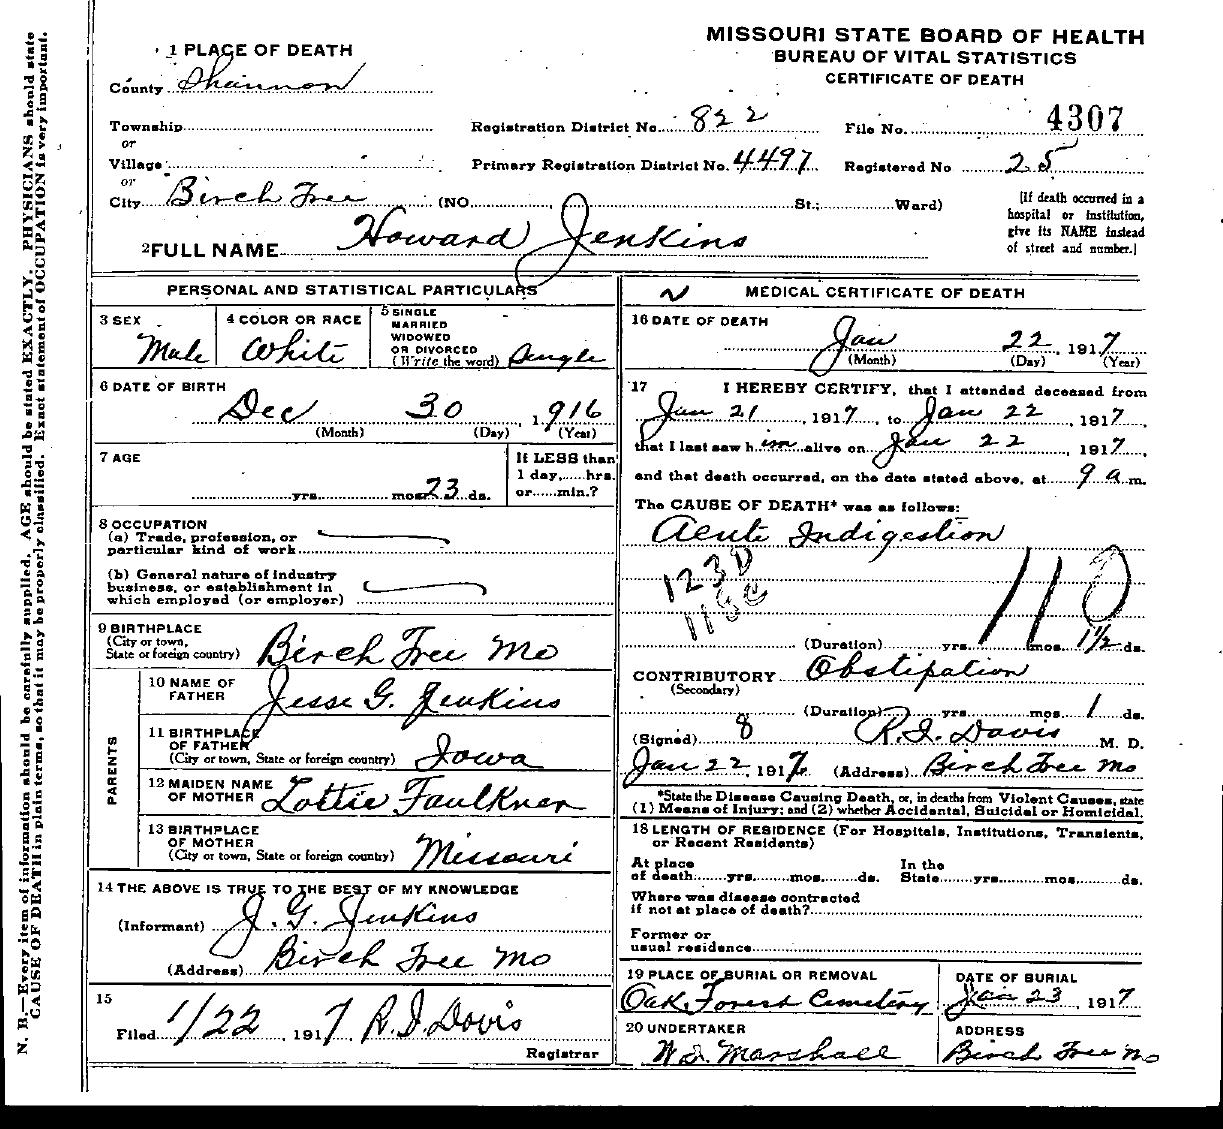 MISSOURI STATE BOARD OF HEALTH
BUREAU OF VITAL STATISTICS
CERTIFICATE OF DEATH
1 PLACE OF DEATH
County Shannon
Township
or
Village
or
City Birch Tree (NO. St.; Ward)
Registration District No. 822 File No. 4307
Primary Registration District No. 4497 Registered No 25
[If death occurred in a
hospital or institution,
give its NAME instead
of street and number.]
2 FULL NAME Howard Jenkins
PERSONAL AND STATISTICAL PARTICULARS
3 SEX
Male
4 COLOR OR RACE
White
5 SINGLE
MARRIED
WIDOWED
OR DIVORCED
(Write the word) Single
6 DATE OF BIRTH
Dec 30, 1916
(Month) (Day) (Year)
7 AGE
yrs. mos. 23 ds.
If LESS than
1 day, hrs.
or min.?
8 OCCUPATION
(a) Trade, profession, or
particular kind of work
(b) General nature of industry
business, or establishment in
which employed (or employer)
9 BIRTHPLACE
(City or town,
State or foreign country) Birch Tree Mo
PARENTS
10 NAME OF
FATHER Jesse G. Jenkins
11 BIRTHPLACE
OF FATHER
(City or town, State or foreign country) Iowa
12 MAIDEN NAME
OF MOTHER Lottie Faulkner
13 BIRTHPLACE
OF MOTHER
(City or town, State or foreign country) Missouri
14 THE ABOVE IS TRUE TO THE BEST OF MY KNOWLEDGE
(Informant) J. G. Jenkins
(Address) Birch Tree Mo
15
Filed 1/22, 1917 R. I. Davis
Registrar
MEDICAL CERTIFICATE OF DEATH
16 DATE OF DEATH
Jan 22, 1917
(Month) (Day) (Year)
17 I HEREBY CERTIFY, that I attended deceased from
Jan 21, 1917, to Jan 22, 1917,
that I last saw him alive on Jan 22, 1917,
and that death occurred, on the date stated above, at 9 a m.
The CAUSE OF DEATH* was as follows:
Acute Indigestion
123D
118C
110
(Duration) yrs. mos. 1 1/2 ds.
CONTRIBUTORY Obstipation
(Secondary)
(Duration) yrs. mos. 1 ds.
8
(Signed) R. I. Davis M. D.
Jan 22, 1917 (Address) Birch Tree Mo
*State the Disease Causing Death, or, in deaths from Violent Causes, state
(1) Means of Injury; and (2) whether Accidental, Suicidal or Homicidal.
18 LENGTH OF RESIDENCE (For Hospitals, Institutions, Transients,
or Recent Residents)
At place
of death yrs. mos. ds.
In the
State yrs. mos. ds.
Where was disease contracted
if not at place of death?
Former or
usual residence
19 PLACE OF BURIAL OR REMOVAL
Oak Forest Cemetery
DATE OF BURIAL
Jan 23, 1917
20 UNDERTAKER
W. I. Marshall
ADDRESS
Birch Tree Mo
N. B.—Every item of information should be carefully supplied. AGE should be stated EXACTLY. PHYSICIANS should state
CAUSE OF DEATH in plain terms, so that it may be properly classified. Exact statement of OCCUPATION is very important.